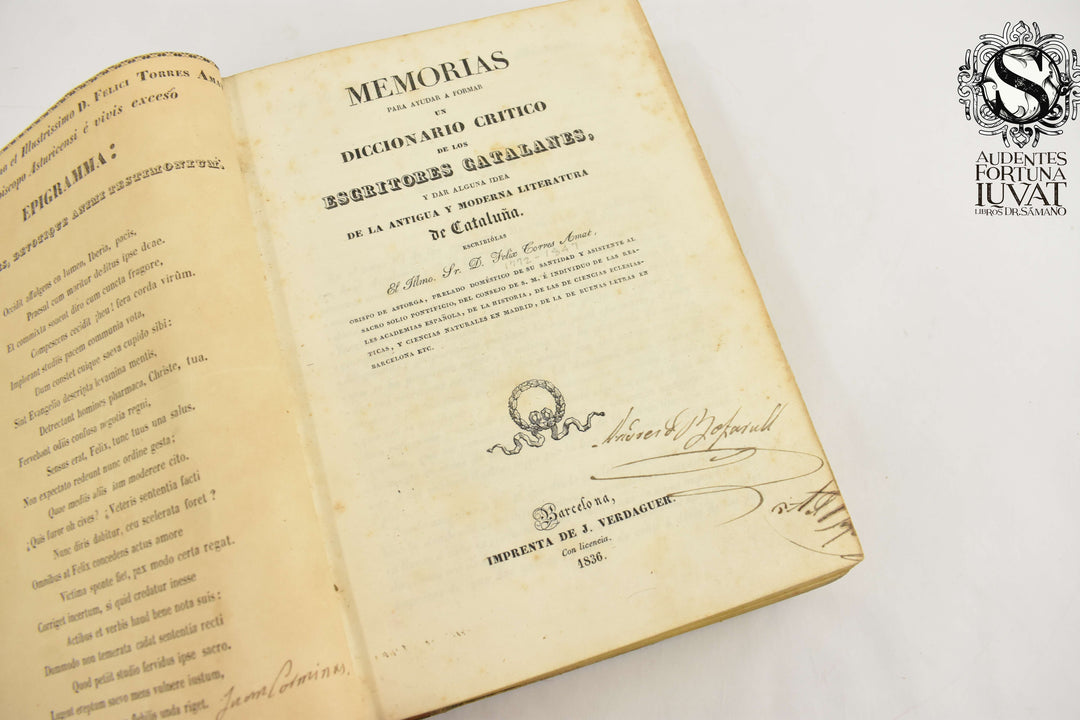 no et Illustrissimo D. Felici Torres Ama
piscopo Asturicensi é vivis excesó
EPIGRAMMA:
S, DEVOTIQUE ANIMI TESTIMONIUM.
Occidit affulgens en lumen, Iberia, pacis,
Praesul cum moritur deditus ipse deae.
Et commixta sonent diro cum cuncta fragore,
Compescens cecidit ¡heu! fera corda virûm.
Implorant studiis pacem communia vota,
Dum constet cuique saeva cupido sibi:
Sint Evangelio descripta levamina mentis,
Detrectant homines pharmaca, Christe, tua.
Fervebant odiis confusa negotia regni,
Sensus erat, Felix, tunc tuus una salus.
Non expectato redeunt nunc ordine gesta:
Quae mediis aliis iam moderere cito.
¿Quis furor oh cives? ¿Veteris sententia facti
Nunc diris dabitur, ceu scelerata foret?
Omnibus at Felix concedens actus amore
Victima sponte fiet, pax modo certa regat.
Corriget incertum, si quid credatur inesse
Actibus et verbis haud bene nota suis:
Dummodo non temerata cadat sententia recti
Quod petiit studio fervidus ipse sacro.
Lugent ereptum saevo mens vulnere iustum,
flebilis unda riget.
Juan Corminas.
MEMORIAS
PARA AYUDAR A FORMAR
UN
DICCIONARIO CRITICO
DE LOS
ESCRITORES CATALANES,
Y DAR ALGUNA IDEA
DE LA ANTIGUA Y MODERNA LITERATURA
de Cataluña.
ESCRIBIÓLAS
El Illmo. Sr. D. Felix Torres Amat,
1772-1847
OBISPO DE ASTORGA, PRELADO DOMÉSTICO DE SU SANTIDAD Y ASISTENTE AL
SACRO SOLIO PONTIFICIO, DEL CONSEJO DE S. M. É INDIVIDUO DE LAS REA-
LES ACADEMIAS ESPAÑOLA, DE LA HISTORIA, DE LAS DE CIENCIAS ECLESIÁS-
TICAS, Y CIENCIAS NATURALES EN MADRID, DE LA DE BUENAS LETRAS EN
BARCELONA ETC.
Andres de Bofarull
Barcelona,
IMPRENTA DE J. VERDAGUER.
Con licencia.
1836.
S
AUDENTES
FORTUNA
IUVAT
LIBROS DR. SÁMANO